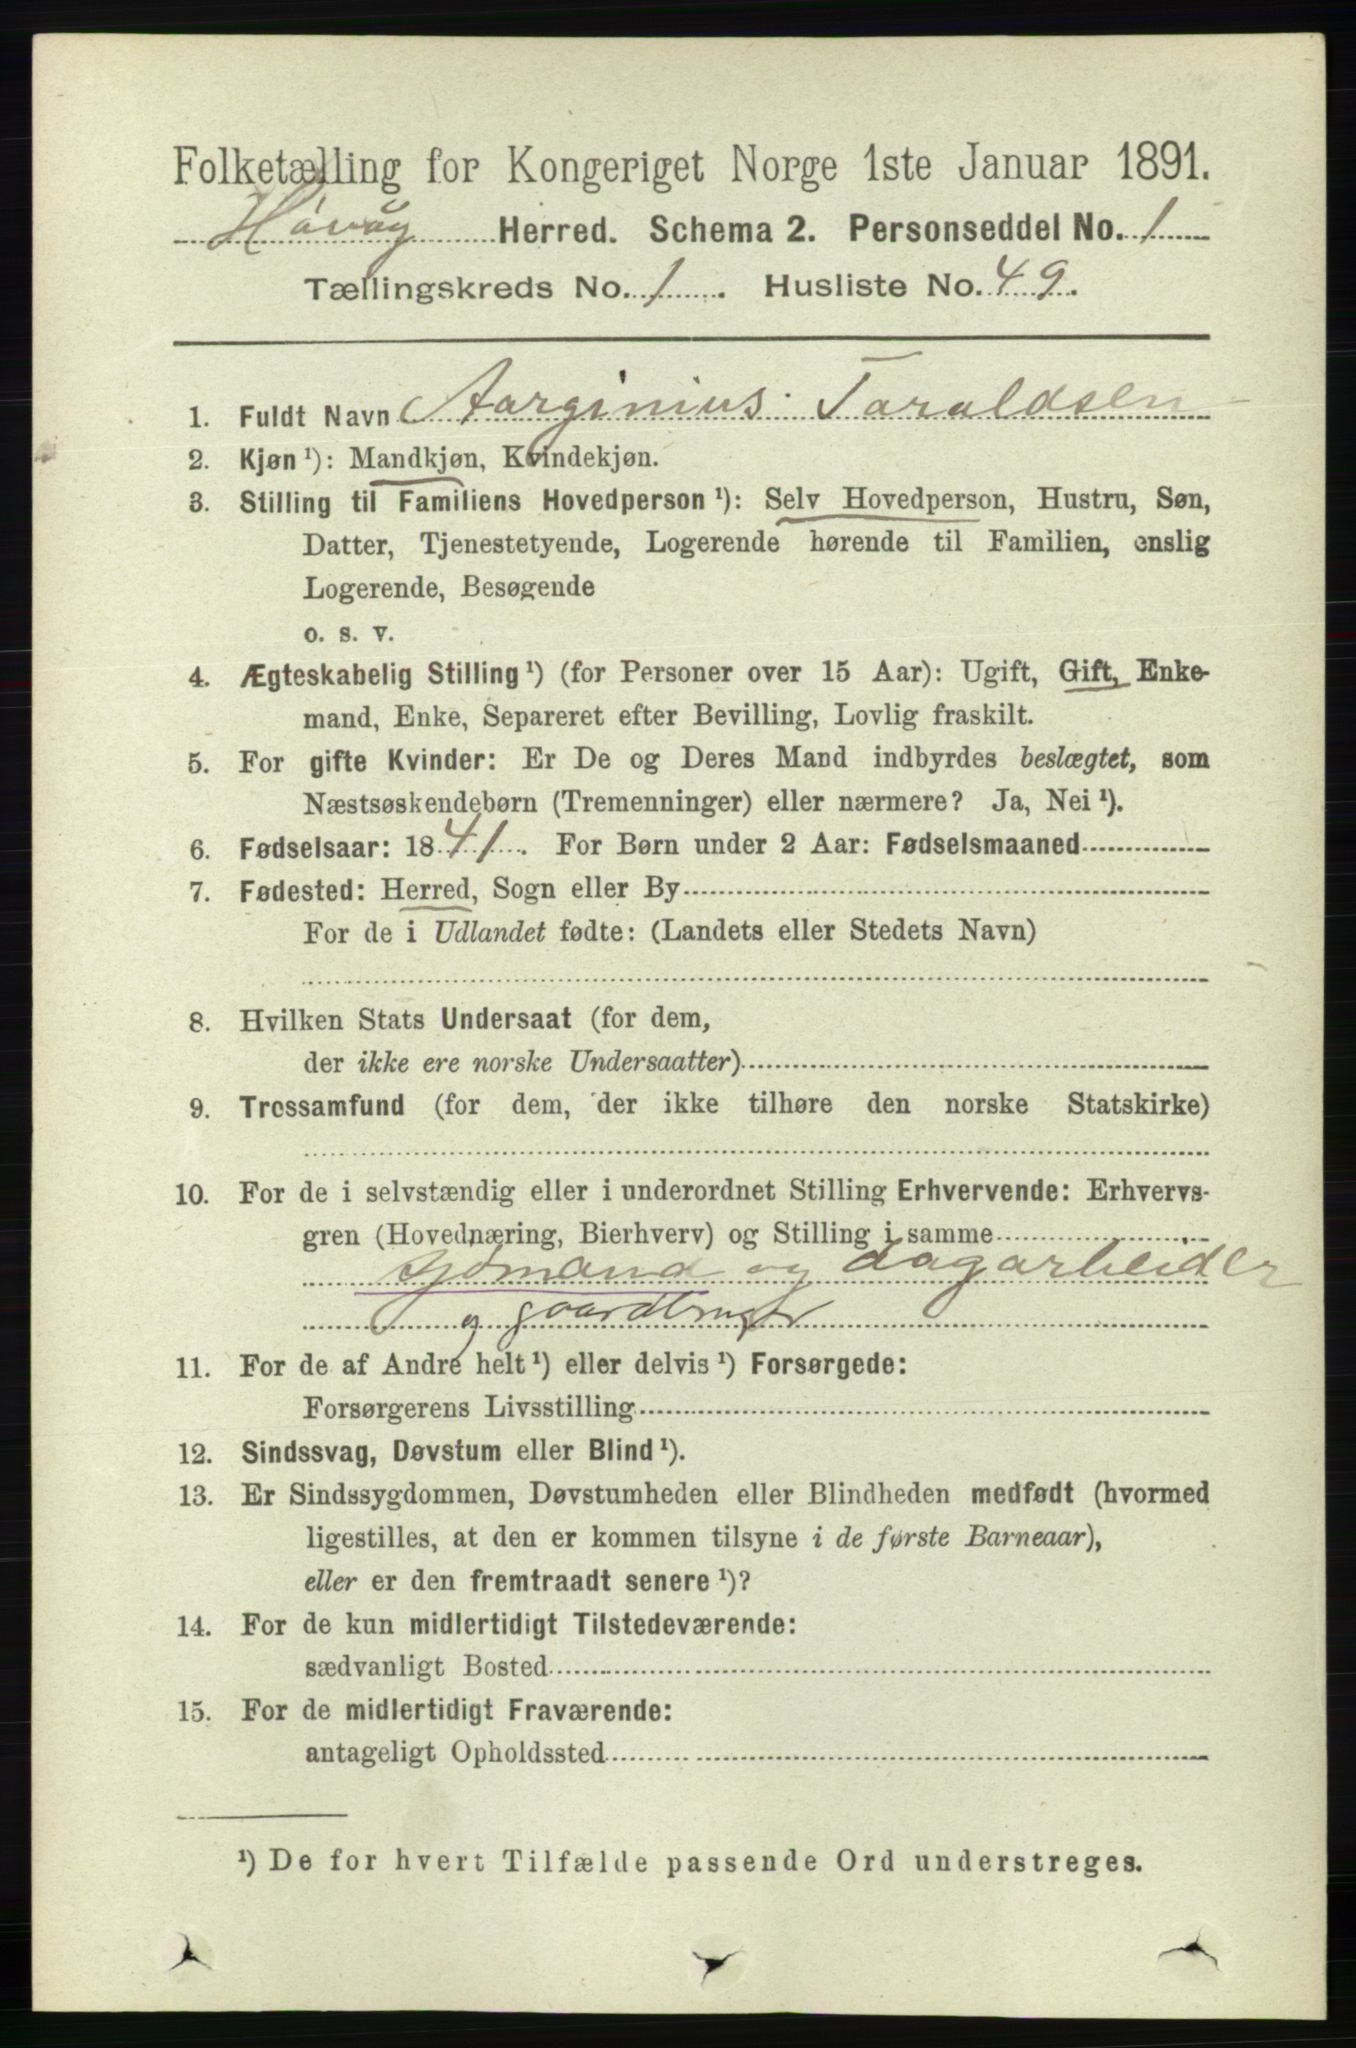 Folketælling for Kongeriget Norge 1ste Januar 1891.
Høvåg Herred. Schema 2. Personseddel No. 1
Tællingskreds No. 1. Husliste No. 49.
1. Fuldt Navn Aarginius Taraldsen
2. Kjøn ¹): Mandkjøn, Kvindekjøn.
3. Stilling til Familiens Hovedperson ¹): Selv Hovedperson, Hustru, Søn,
Datter, Tjenestetyende, Logerende hørende til Familien, enslig
Logerende, Besøgende
o. s. v.
4. Ægteskabelig Stilling ¹) (for Personer over 15 Aar): Ugift, Gift, Enke-
mand, Enke, Separeret efter Bevilling, Lovlig fraskilt.
5. For gifte Kvinder: Er De og Deres Mand indbyrdes beslægtet, som
Næstsøskendebørn (Tremenninger) eller nærmere? Ja, Nei ¹).
6. Fødselsaar: 1841. For Børn under 2 Aar: Fødselsmaaned
7. Fødested: Herred, Sogn eller By
For de i Udlandet fødte: (Landets eller Stedets Navn)
8. Hvilken Stats Undersaat (for dem,
der ikke ere norske Undersaatter)
9. Trossamfund (for dem, der ikke tilhøre den norske Statskirke)
10. For de i selvstændig eller i underordnet Stilling Erhvervende: Erhvervs-
gren (Hovednæring, Bierhverv) og Stilling i samme
sjömand og dagarbeider
og gaardbruger
11. For de af Andre helt ¹) eller delvis ¹) Forsørgede:
Forsørgerens Livsstilling
12. Sindssvag, Døvstum eller Blind ¹).
13. Er Sindssygdommen, Døvstumheden eller Blindheden medfødt (hvormed
ligestilles, at den er kommen tilsyne i de første Barneaar),
eller er den fremtraadt senere ¹)?
14. For de kun midlertidigt Tilstedeværende:
sædvanligt Bosted
15. For de midlertidigt Fraværende:
antageligt Opholdssted
¹) De for hvert Tilfælde passende Ord understreges.